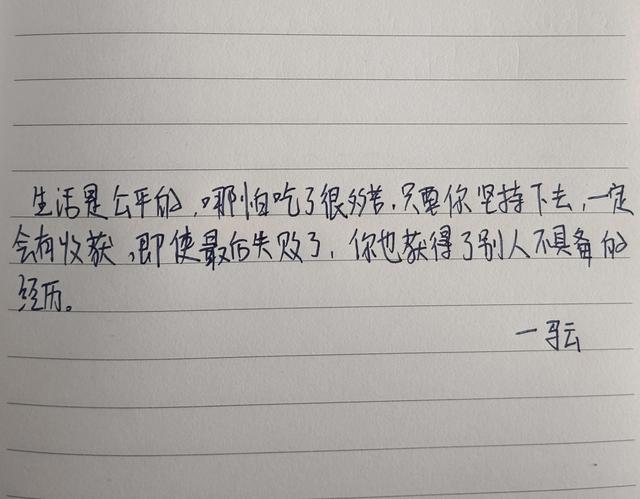 生活是公平的,哪怕吃了很多苦,只要你坚持下去,一定
会有收获,即使最后失败了,你也获得了别人不具备的
经历。
一马云